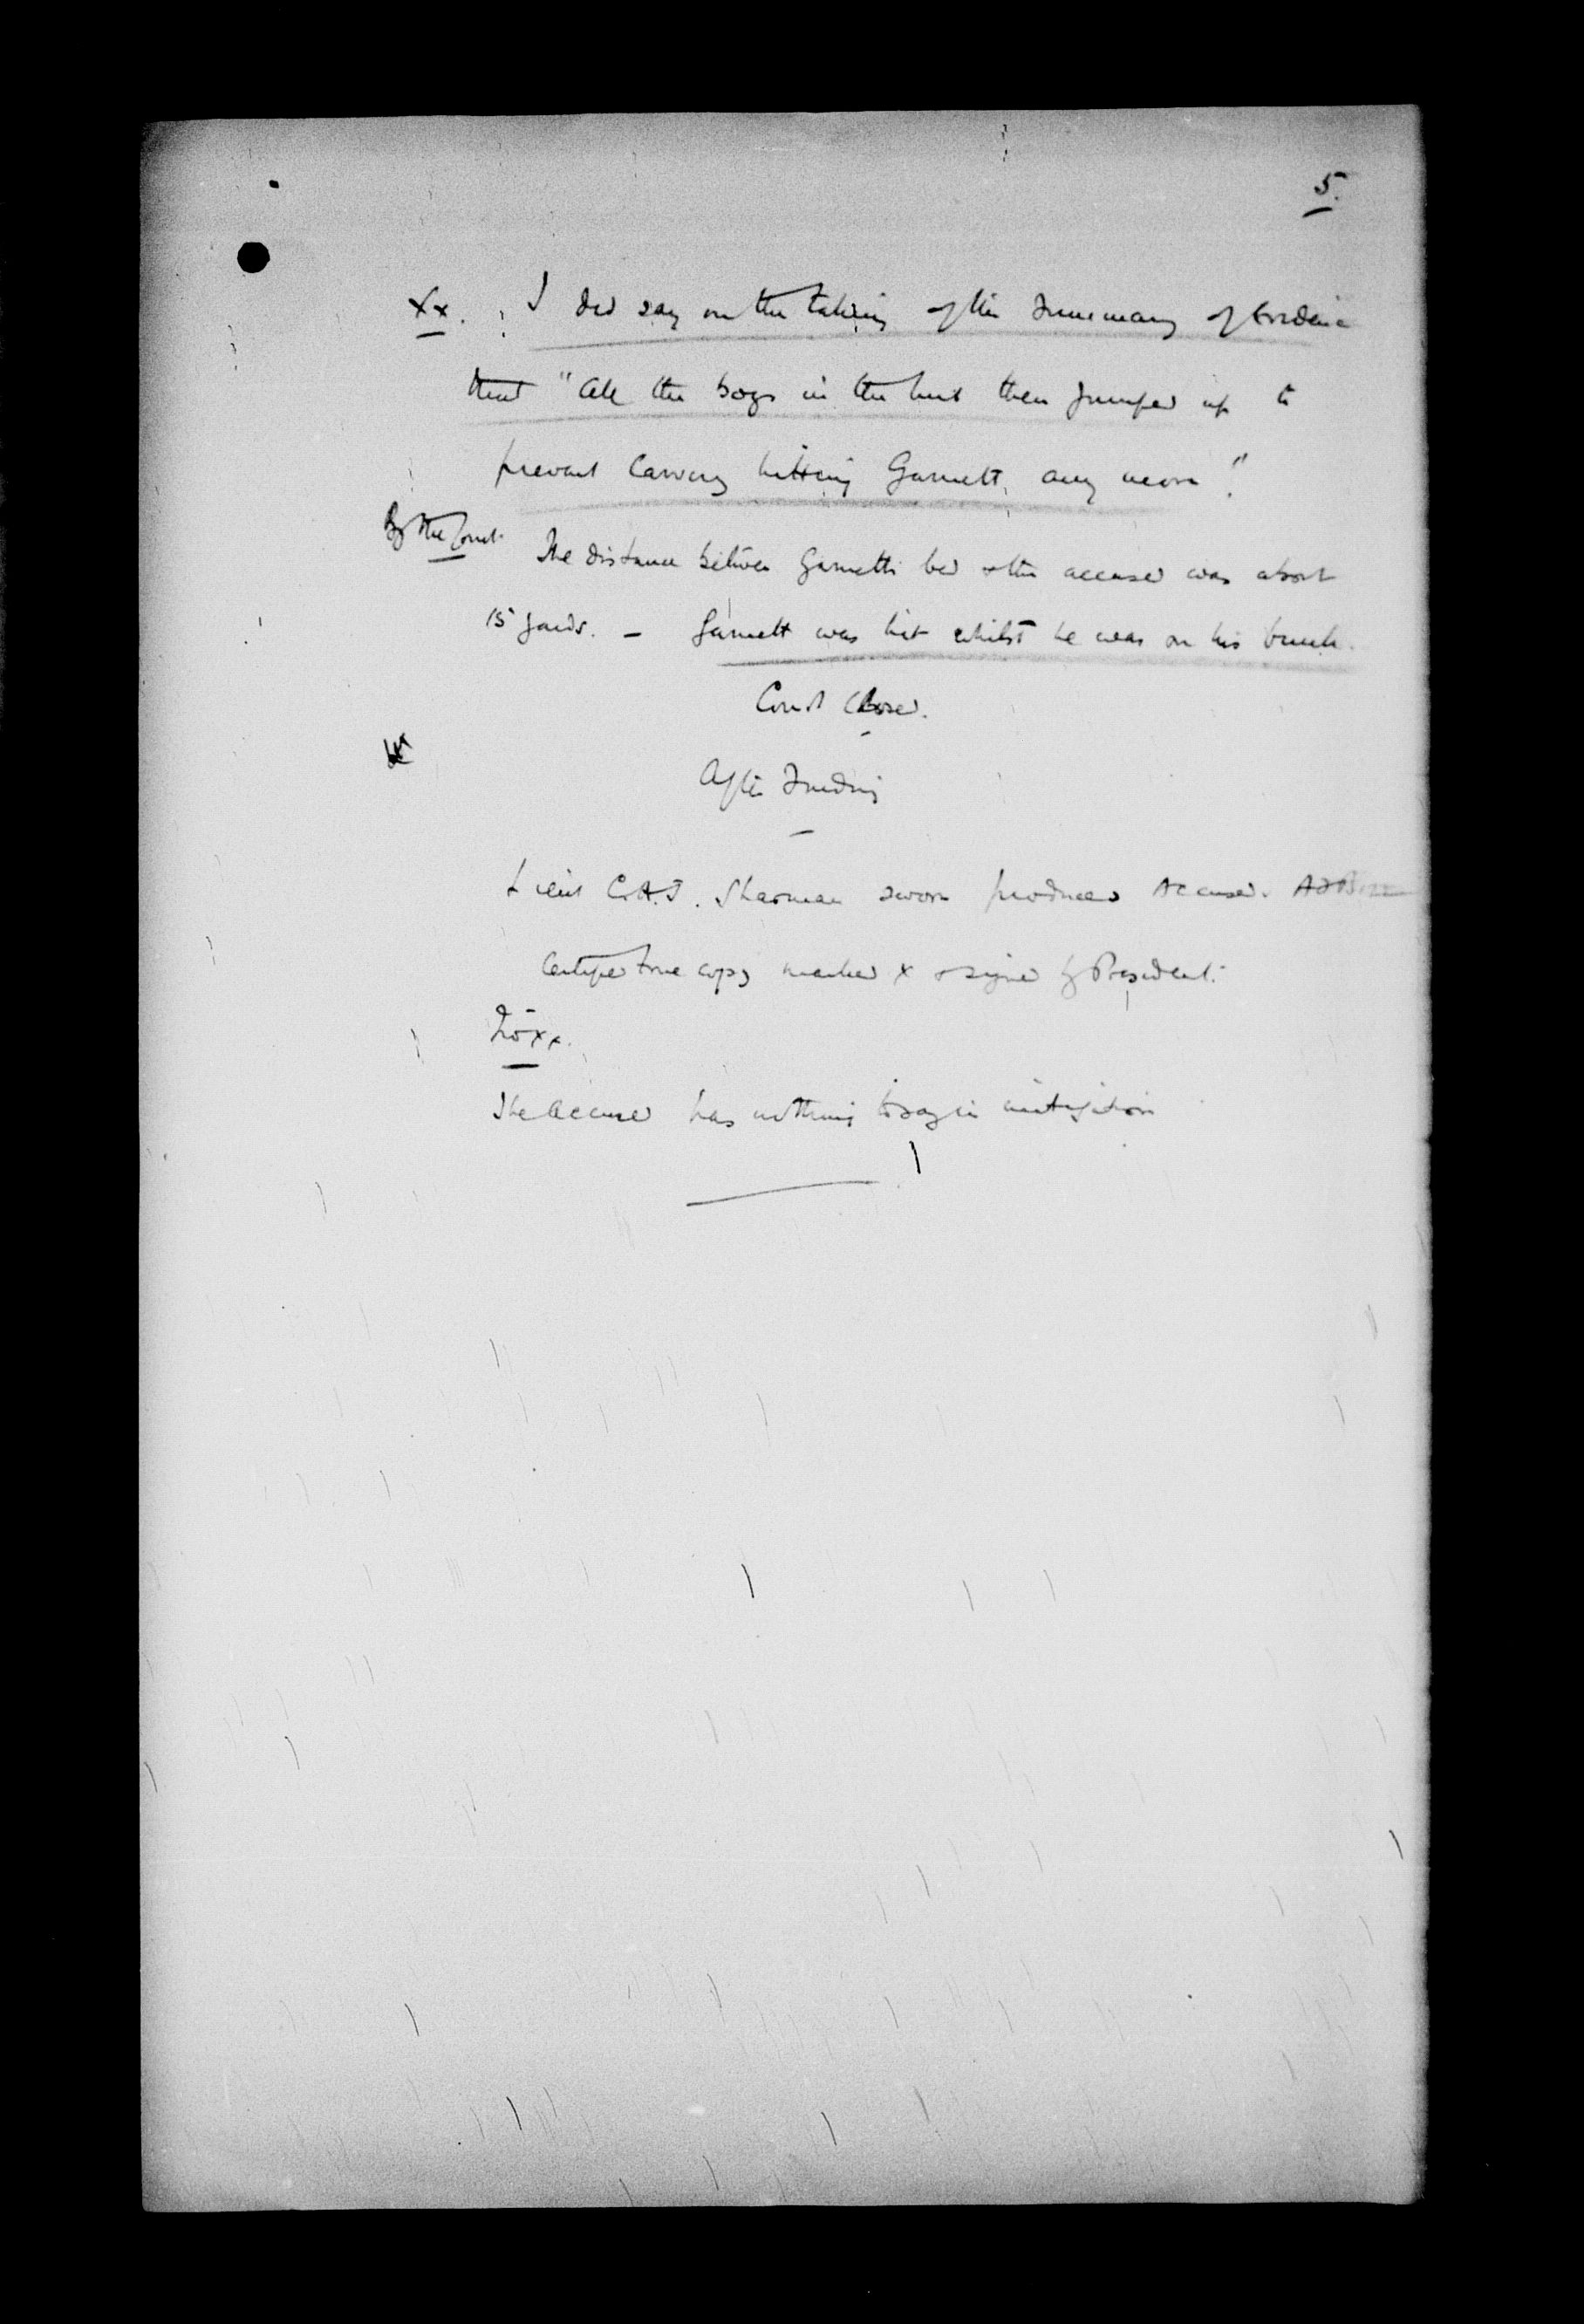 5.
Xx. I did say on the taking of the Summary of Evidence
that "All the boys in the hut then jumped up to
prevent hitting Garnett any more".
By the Court. The distance between Garnetts bed & the accused was about
15 yards. - Garnett was hit whilst he was on his bunk.
Court closed.
After Finding
Lieut C.A.J. Sharman sworn produces Accused.
Certified true copy marked X & signed by President.
No xx.
The accused has nothing to say in mitigation